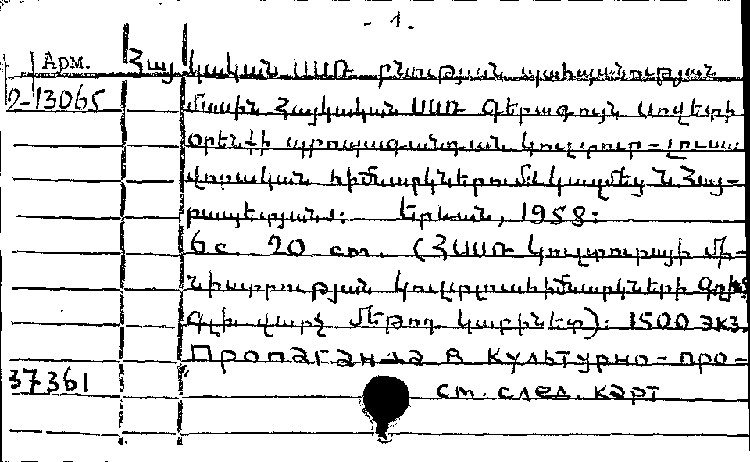 - 1.
Арм. Հայկական ՍՍՌ բնության պահպանության
2-13065 մասին Հայկական ՍՍՌ Գերագույն Սովետի
օրենքի պրոպագանդան կուլտուր-լուսա
վորական հիմնարկներում: Կազմեց Ն. Հայ-
րապետյանը: Երևան, 1958:
6 с. 20 cm. (ՀՍՍՌ կուլտուրայի մի-
նիստրության կուլտլուսհիմնարկների գլխ.
վարչ. մեթոդ. կաբինետ): 1500 экз.
Пропаганда в культурно-про-
37361 см. след. карт